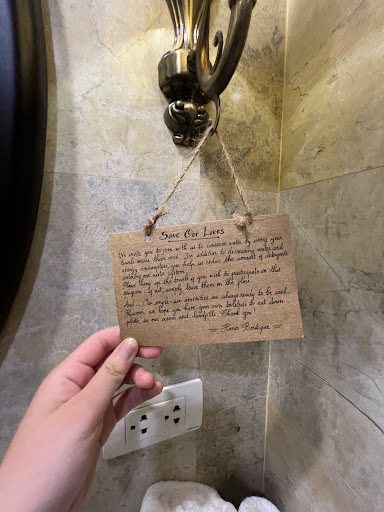 Save Our Lives
We invite you to join with us to conserve water by using your
towels more than once. In addition to decreasing water and
energy consumption, you help us reduce the amount of detergents
water system.
Hang them on the towels if you wish to participate in this
program - if not, simply leave them on the floor.
And... Our single-use amenities are always ready to be used.
However, we hope you have your own toiletries to cut down
plastic in our ocean and landfills. Thank you!
Hanoi Boutique